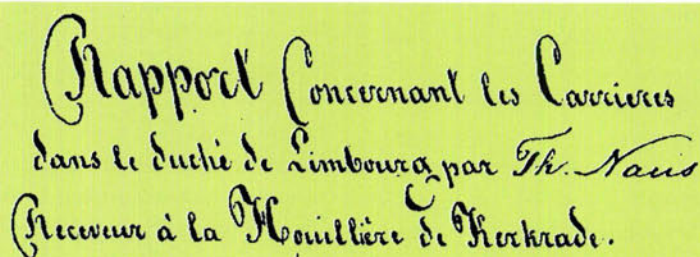 Rapport Concernant les Carrieres
dans le duché de Limbourg par Th. Naus
Receveur à la Houillière de Kerkrade.